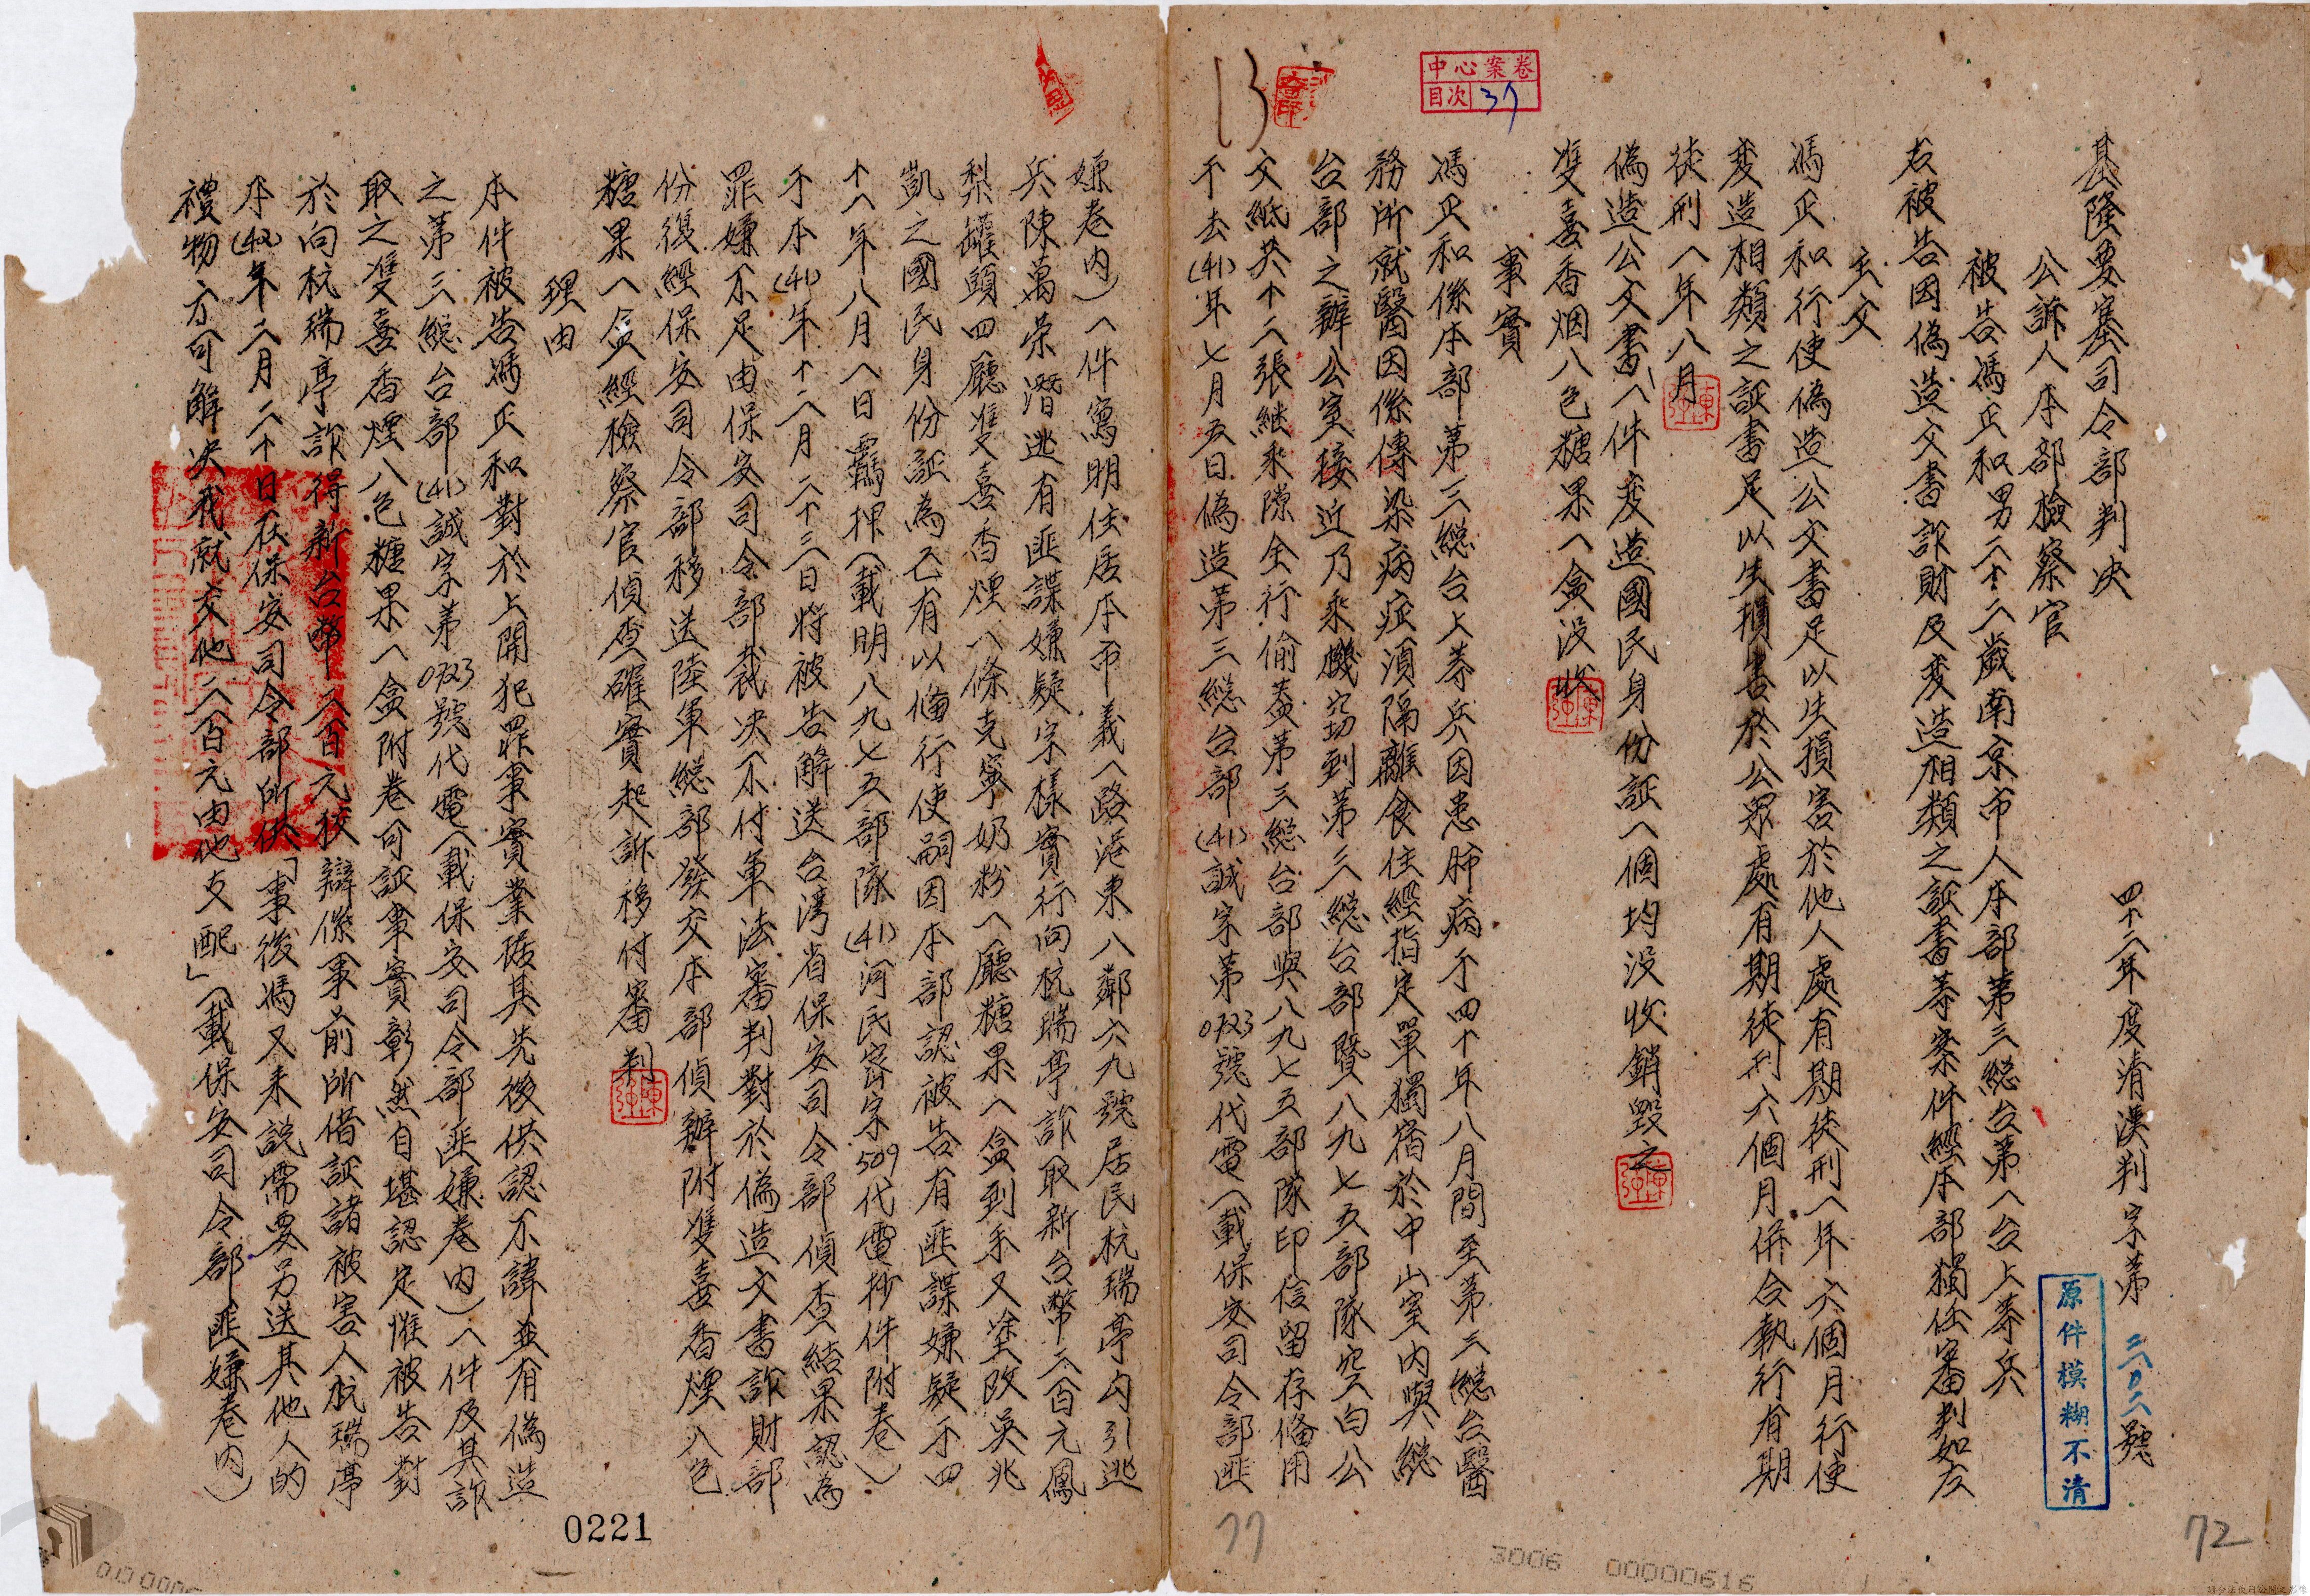 基隆要塞司令部判決
四十二年度清漢判字第二〇二號
公訴人本部檢察官
被告馮正和男二十二歲南京市人本部第三總台第一台上等兵
右被告因偽造文書詐財及变造相類之証書等案件經本部獨任審判如左
主文
馮正和行使偽造公文書足以生損害於他人處有期徒刑一年六個月行使
变造相類之証書足以生損害於公眾處有期徒刑六個月併合執行有期
徒刑一年八月
偽造公文書一件变造國民身份証一個均沒收銷毀之
雙喜香烟八包糖果一盒沒收
事實
馮正和係本部第三總台上等兵因患肺病于四十年八月間至第三總台醫
務所就醫因係傳染病症須隔離食住經指定單獨宿於中山室內與總
台部之辦公室接近乃乘機窃到第三總台部暨八九七五部隊空白公
文紙共十二張継乘隙全行偷蓋第三總台部與八九七五部隊印信留存俻用
于去(41)年七月五日偽造第三總台部(41)誠字第0723號代電(載保安司令部匪
嫌卷內)一件寫明住居本市義一路港東八鄰六九號居民杭瑞亭勾引逃
兵陳萬荣潛逃有匪諜嫌疑字樣實行向杭瑞亭詐取新台幣二百元鳳
梨罐頭四廳雙喜香煙一條克寧奶粉一廳糖果一盒到手又塗改吳兆
凱之國民身份証為己有以俻行使嗣因本部認被告有匪諜嫌疑于四
十一年八月一日覊押(載明八九七五部隊(41)河民密字509代電抄件附卷)
于本(41)年十二月二十三日將被告解送台湾省保安司令部偵查結果認為
罪嫌不足由保安司令部裁決不付軍法審判對於偽造文書詐財部
份復經保安司令部移送陸軍總部發交本部偵辦附雙喜香煙八包
糖果一盒經檢察官偵查確實起訴移付審判
理由
本件被告馮正和對於上開犯罪事實業据其先後供認不諱並有偽造
之第三總台部(41)誠字第0723號代電(載保安司令部匪嫌卷內)一件及其詐
取之雙喜香煙八包糖果一盒附卷可証事實彰然自堪認定惟被告對
於向杭瑞亭詐得新台幣二百元狡辯係事前所借証諸被害人杭瑞亭
本(42)年二月二十日在保安司令部所供「事後馮又来說需要另送其他人的
禮物方可解決我就交他二百元由他支配」(載保安司令部匪嫌卷內)
中心案卷
目次 37
原件模糊不清
13
77
72
0221
3006 00000616